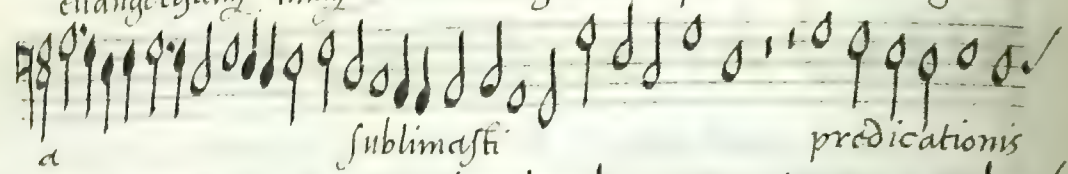 a sublimasti predicationis